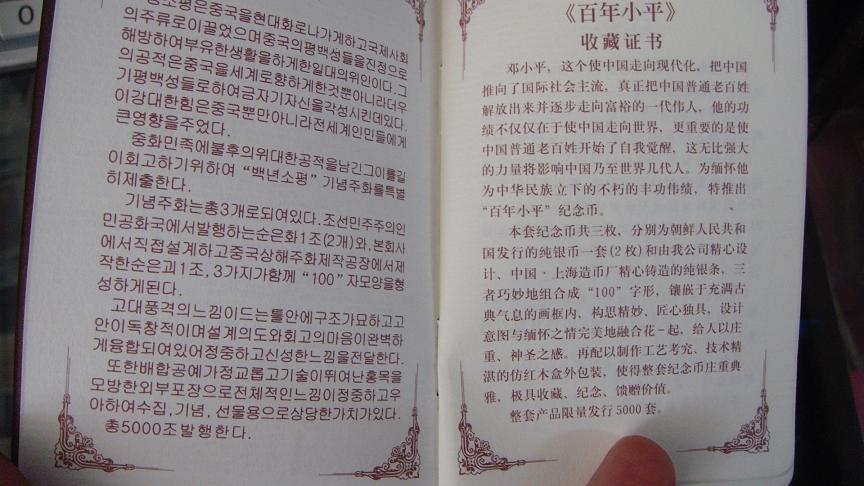 소평은중국을현대화로나가게하고국제사회
의주류로이끌었으며중국의평백성들을진정으로
해방하여부유한생활을하게한일대의위인이다.그
의공적은중국을세계로향하게한것뿐아니라더우
기평백성들로하여금자기자신을각성시킨데있다.
이강대한힘은중국뿐만아니라전세계인민들에게
큰영향을주었다.
중화민족에불후의위대한공적을남긴그이를길
이회고하기위하여 “백년소평” 기념주화를특별
히제출한다.
기념주화는총3개로되여있다.조선민주주의인
민공화국에서발행하는순은화1조(2개)와,본회사
에서직접설계하고중국상해주화제작공장에서제
작한순은괴1조, 3가지가함께 “100” 자모양을형
성하게된다.
고대풍격의느낌이드는틀안에구조가묘하고고
안이독창적이며설계의도와회고의마음이완벽하
게융합되여있어정중하고신성한느낌을전달한다.
또한배합공예가정교롭고기술이뛰여난홍목을
모방한외부포장으로전체적인느낌이정중하고우
아하여수집, 기념, 선물용으로상당한가치가있다.
총5000조발행한다.
《百年小平》
收藏证书
邓小平，这个使中国走向现代化，把中国
推向了国际社会主流，真正把中国普通老百姓
解放出来并逐步走向富裕的一代伟人，他的功
绩不仅仅在于使中国走向世界，更重要的是使
中国普通老百姓开始了自我觉醒，这无比强大
的力量将影响中国乃至世界几代人。为缅怀他
为中华民族立下的不朽的丰功伟绩，特推出
“百年小平”纪念币。
本套纪念币共三枚，分别为朝鲜人民共和
国发行的纯银币一套(2枚)和由我公司精心设
计、中国·上海造币厂精心铸造的纯银条，三
者巧妙地组合成“100”字形，镶嵌于充满古
典气息的画框内、构思精妙、匠心独具，设计
意图与缅怀之情完美地融合花-起，给人以庄
重、神圣之感。再配以制作工艺考究、技术精
湛的仿红木盒外包装，使得整套纪念币庄重典
雅，极具收藏、纪念、馈赠价值。
整套产品限量发行5000套。